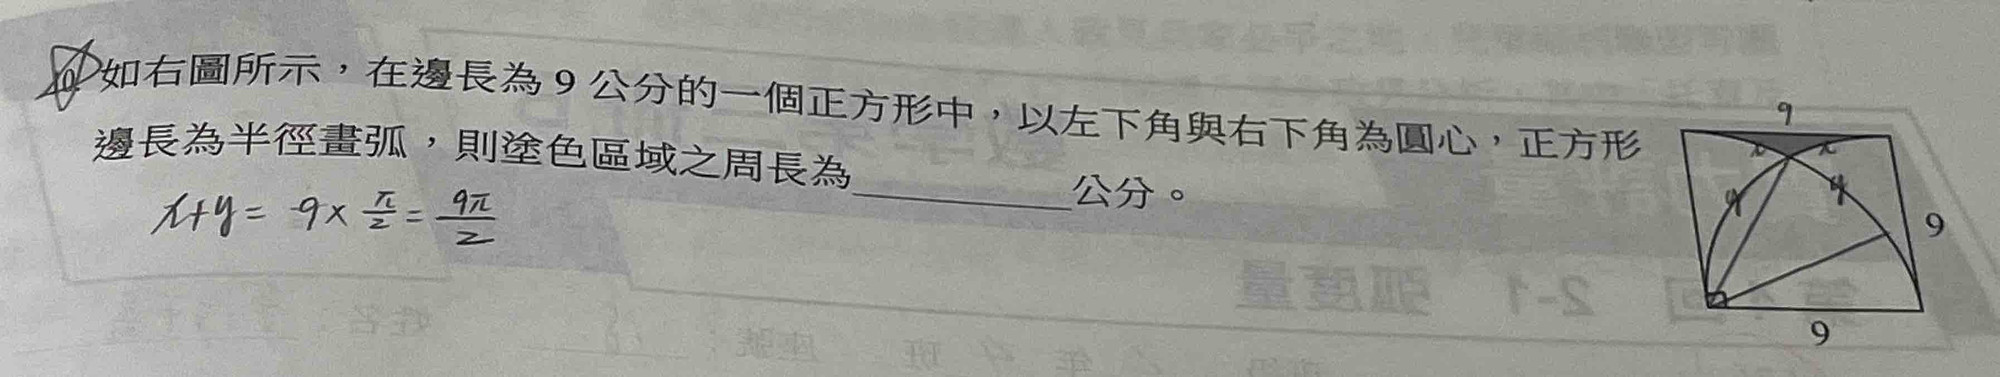 如右圖所示，在邊長為 9 公分的一個正方形中，以左下角與右下角為圓心，正方形
邊長為半徑畫弧，則塗色區域之周長為__________公分。
x+y= 9×π/2=9π/2
9
x x
y y
9
9
第 回 2-1 弧度量
年 班 座號：18 姓名：